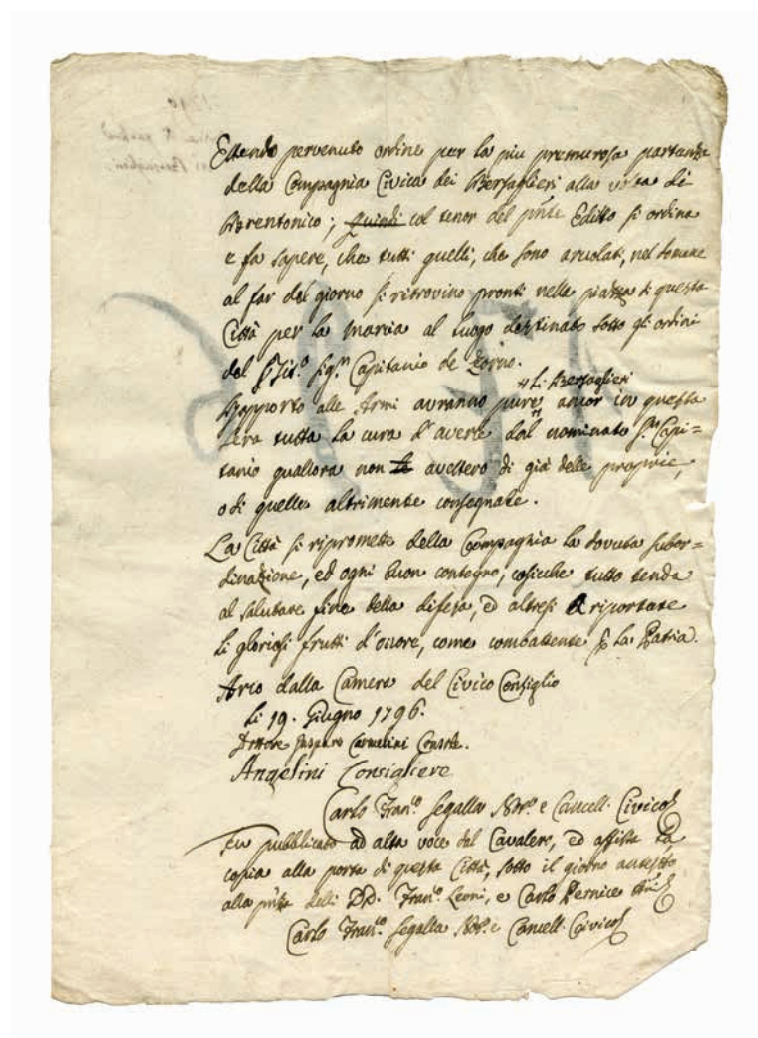 Essendo pervenuto ordine per la piu premurosa partenza
della Compagnia Civica dei Bersaglieri alla volta di
Brentonico; Quindi col tenor del pnte Editto si ordina
e fa sapere, che tutti quelli, che sono aruolati, nel domane
al far del giorno si ritrovino pronti nella piazza di questa
Città per la marcia al luogo destinato sotto gli ordini
del Sigr. Capitanio de
li Bersaglieri
Rapporto alle Armi avranno pure ancor in questa
sera tutta la cura d'averle dal nominato Sr. Capi=
tanio quallora non le avessero di già delle proprie,
o di quelle altrimente consegnate.
La Città si ripromette della Compagnia la dovuta subor=
dinazione, ed ogni buon contegno, cosicche tutto tenda
al salutare fine della difesa, ed altresi a riportare
li gloriosi frutti d'onore, come combattente la Patria.
Arco dalla Camera del Civico Consiglio
li 19. Giugno 1796.
Gasparo
Angelini Consigliere
Carlo Fran.co Segalla Nor.o e Cancell. Civico
Fu pubblicato ad alta voce del Cavalero, ed affissa la
copia alla porta di questa Città, sotto il giorno
alla pnza deli DD. Fran.co Leoni, e Carlo Pernice
Carlo Fran.co Segalla Nor.o e Cancell. Civico